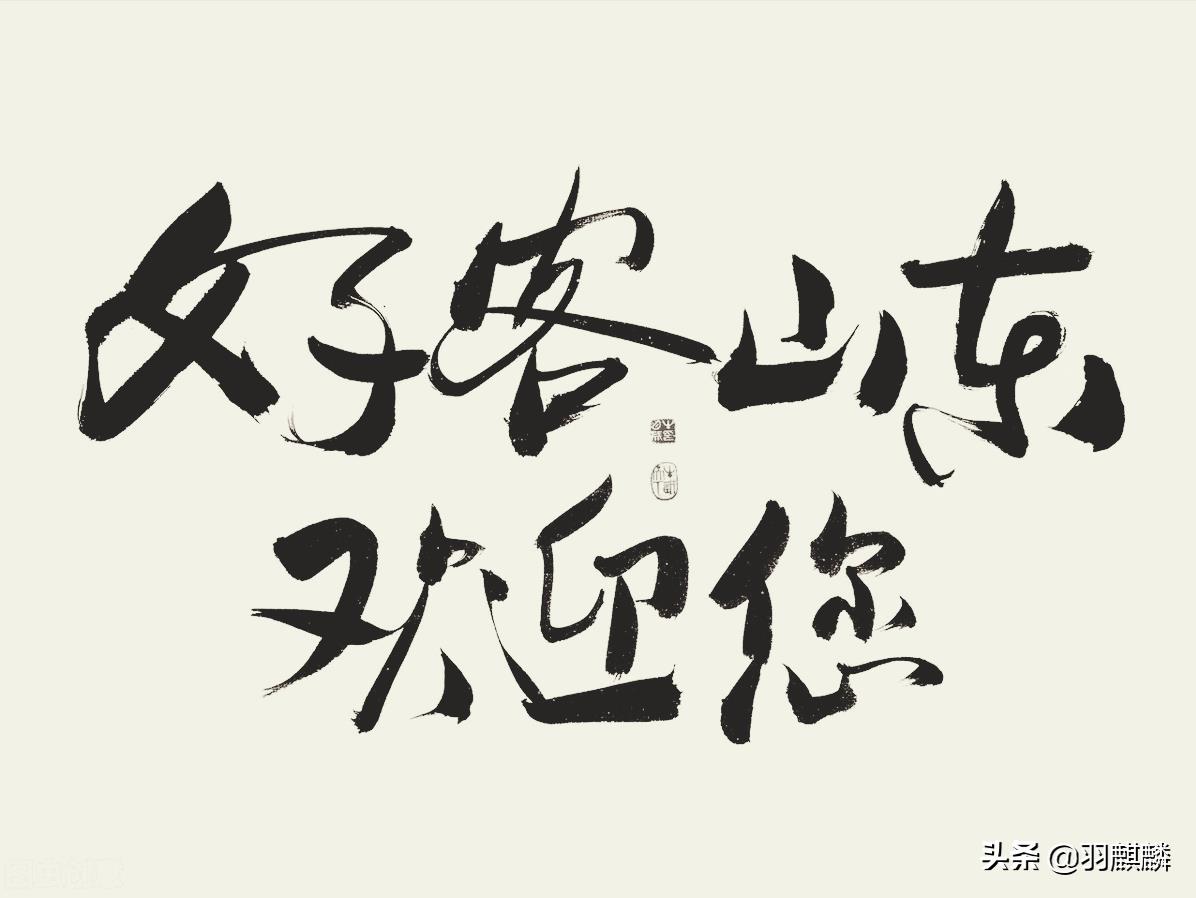 好客山东
欢迎您
头条 @羽麒麟